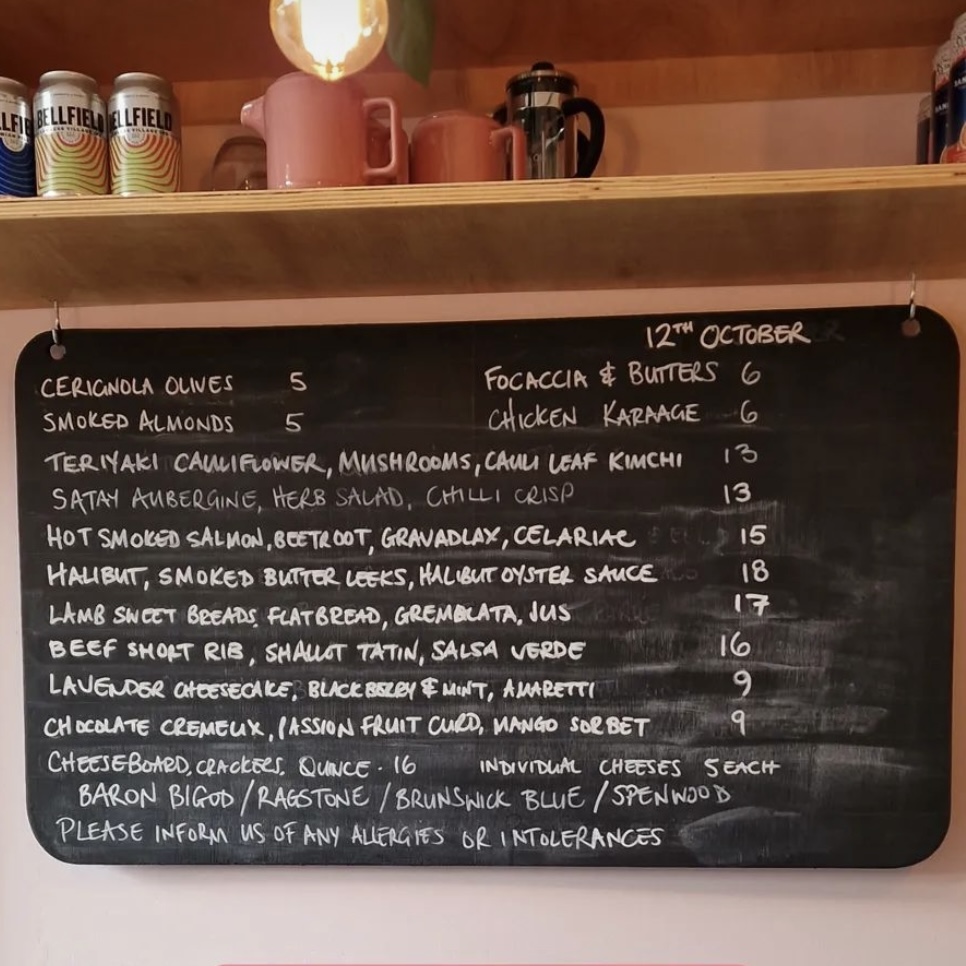 BELLFIELD
ELLFIELD
12TH OCTOBER
CERIGNOLA OLIVES 5
FOCACCIA & BUTTERS 6
SMOKED ALMONDS 5
CHICKEN KARAAGE 6
TERIYAKI CAULIFLOWER, MUSHROOMS, CAULI LEAF KIMCHI 13
SATAY AUBERGINE, HERB SALAD, CHILLI CRISP 13
HOT SMOKED SALMON, BEETROOT, GRAVADLAX, CELARIAC 15
HALIBUT, SMOKED BUTTER LEEKS, HALIBUT OYSTER SAUCE 18
LAMB SWEET BREADS, FLATBREAD, GREMOLATA, JUS 17
BEEF SHORT RIB, SHALLOT TATIN, SALSA VERDE 16
LAVENDER CHEESECAKE, BLACKBERRY & MINT, AMARETTI 9
CHOCOLATE CREMEUX, PASSION FRUIT CURD, MANGO SORBET 9
CHEESEBOARD, CRACKERS, QUINCE · 16 INDIVIDUAL CHEESES 5 EACH
BARON BIGOD / RAGSTONE / BRUNSWICK BLUE / SPENWOOD
PLEASE INFORM US OF ANY ALLERGIES OR INTOLERANCES